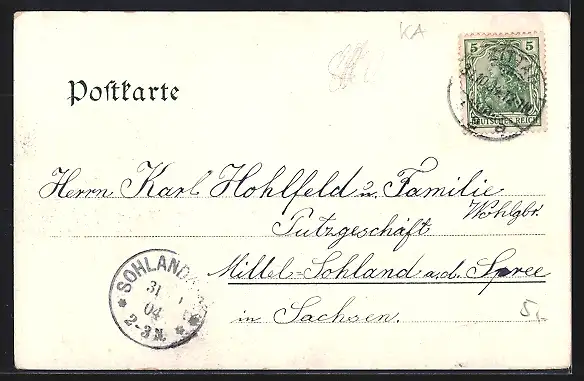 KA
5 5
ZITTAU
DEUTSCHES REICH
Postkarte
Herrn Karl Hohlfeld u. Familie
Wohlgbr.
Putzgeschäft
Mittel-Sohland a.d. Spree
in Sachsen.
SOHLAND
31
04
2-3 N.
5,-